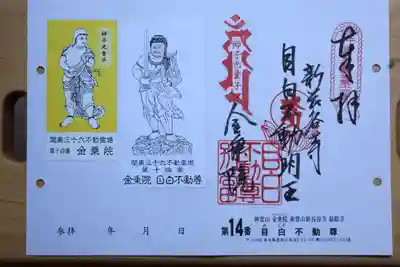 師子光童子
関東三十六不動霊場
第十四番 金乗院
関東三十六不動霊場
第十四番
金乗院 目白不動尊
奉拝
新長谷寺
目白不動明王
師子光童子
金乗院
目白
不動尊
神霊山 金乗院
第14番 目白不動尊
参拝 年 月 日